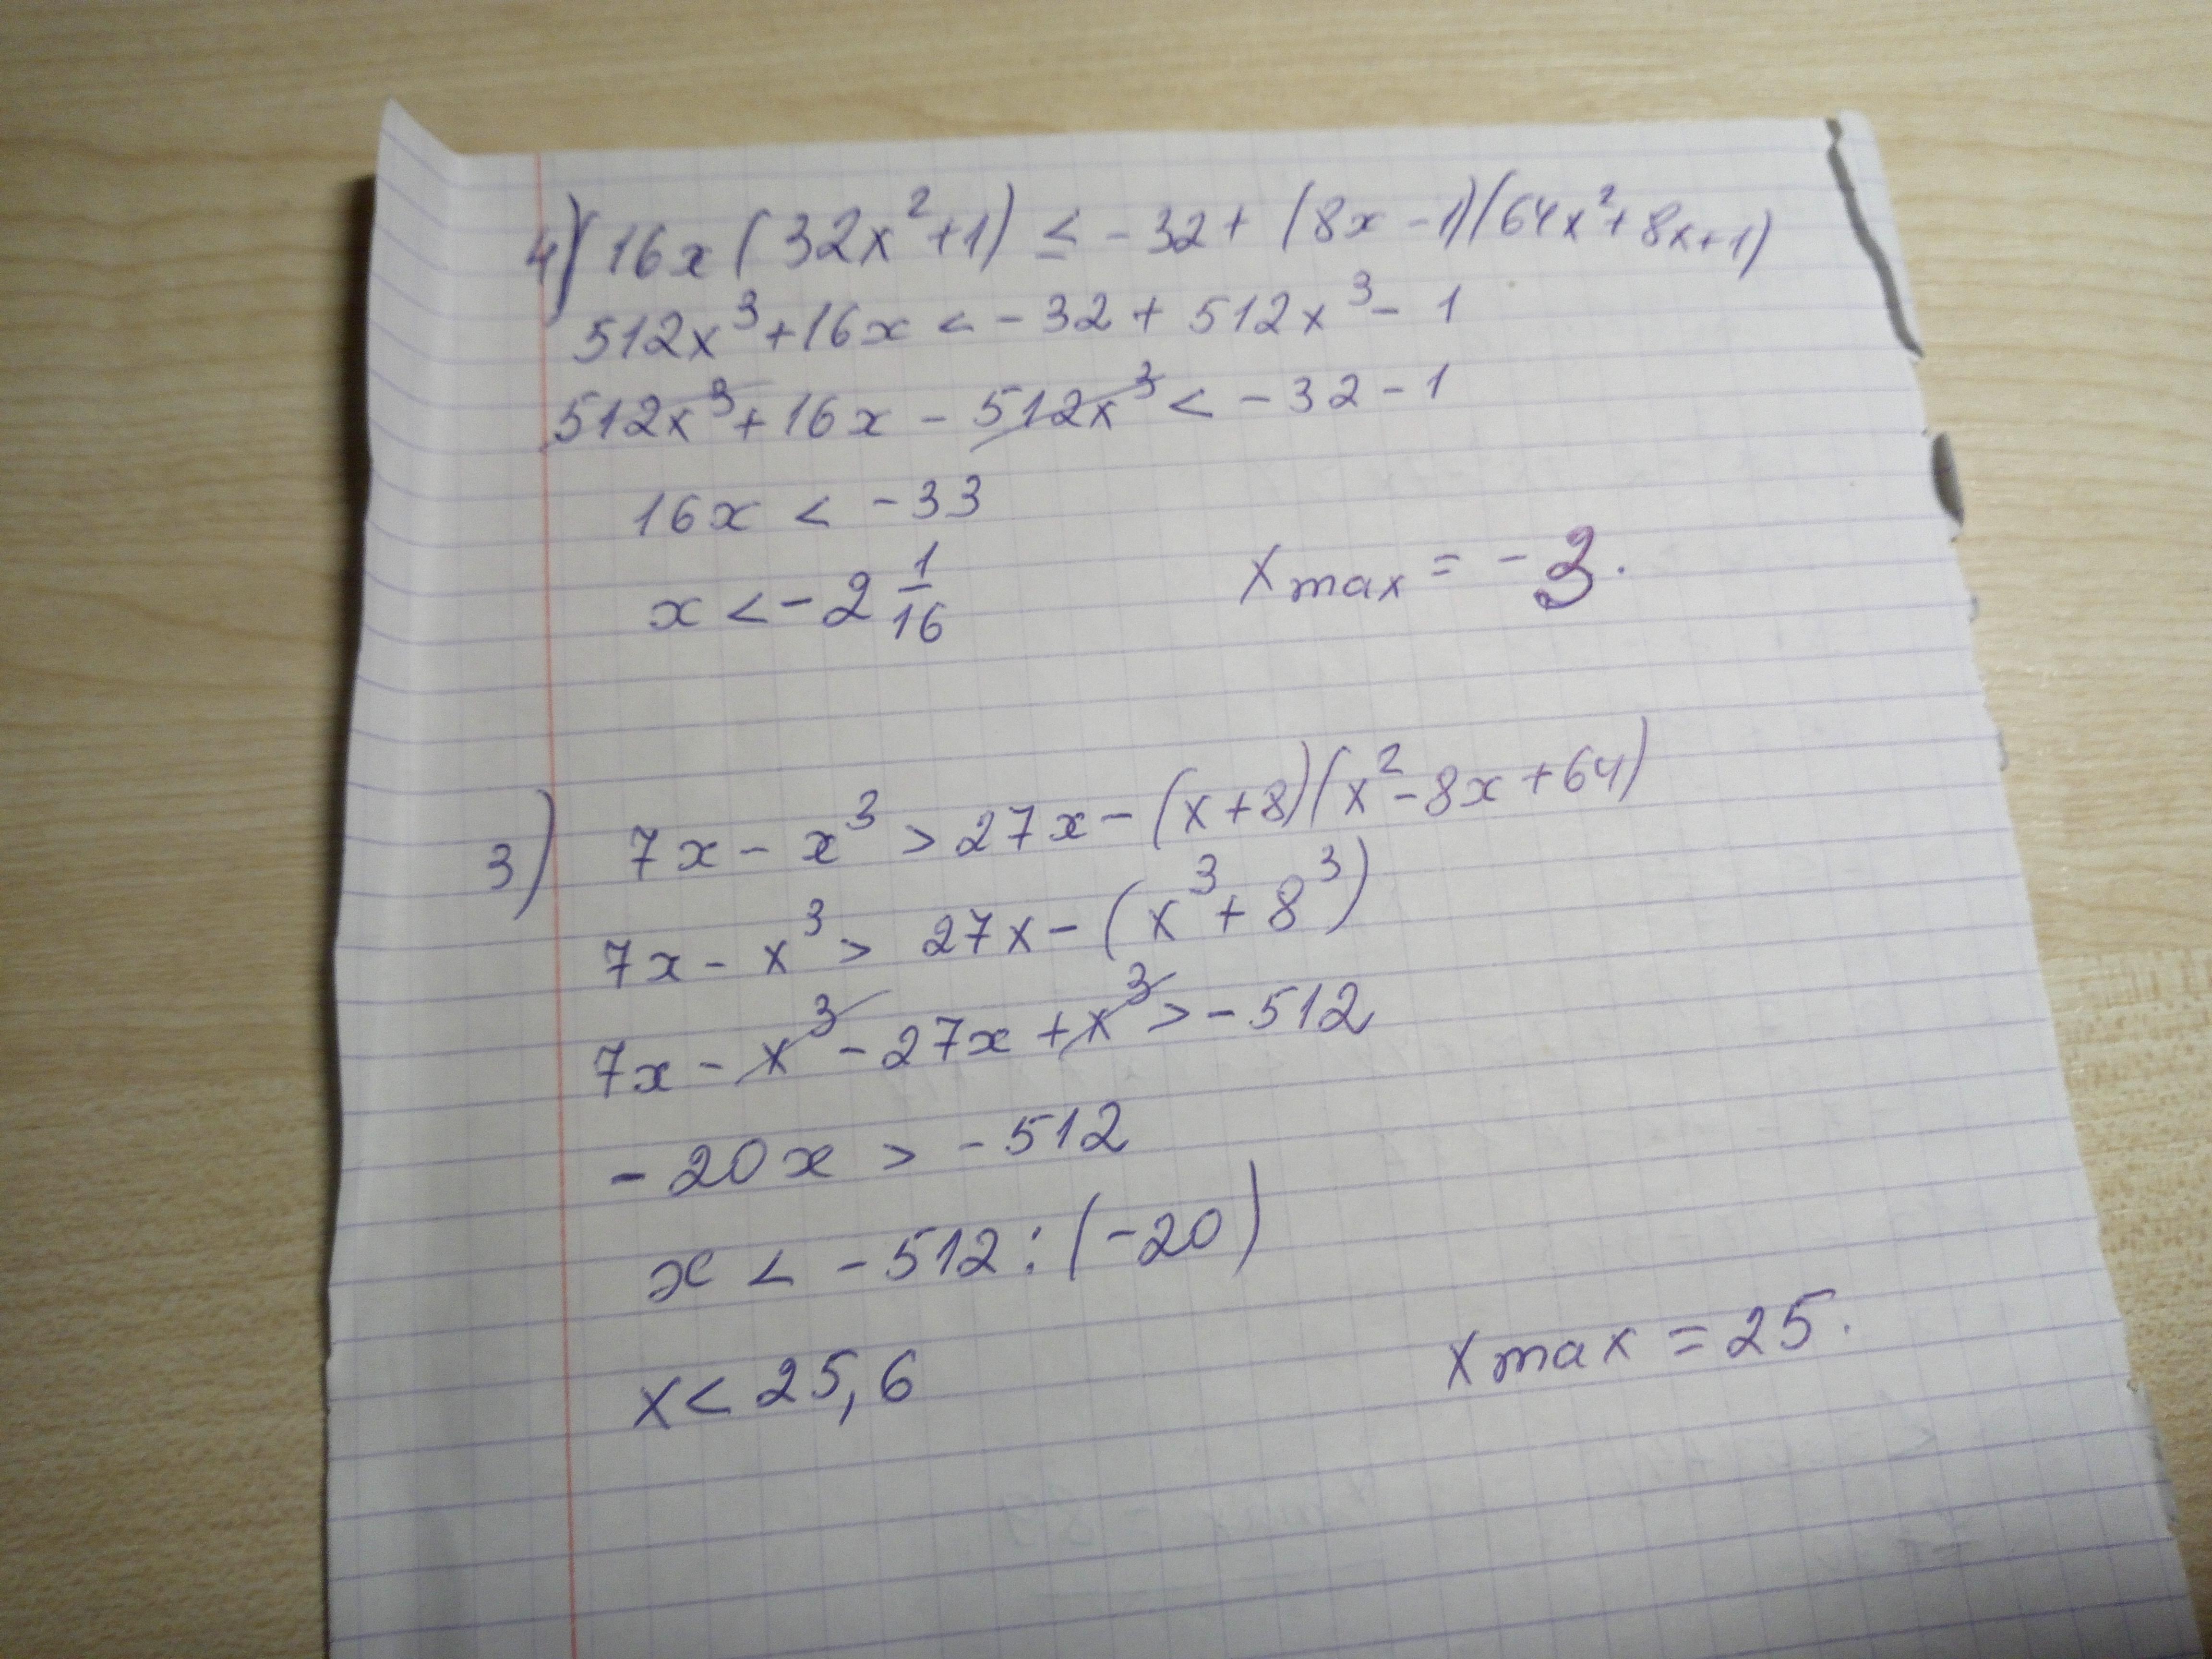 4) 16x(32x²+1) ≤ -32+(8x-1)(64x²+8x+1)
512x³+16x < -32+512x³-1
512x³+16x-512x³ < -32-1
16x < -33
x < -2 1/16
x max = -3.
3) 7x-x³ > 27x-(x+8)(x²-8x+64)
7x-x³ > 27x-(x³+8³)
7x-x³-27x+x³ > -512
-20x > -512
x < -512:(-20)
x < 25,6
x max = 25.